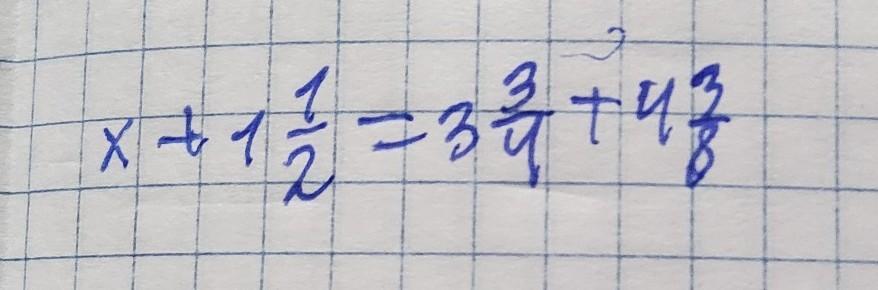 x + 1 1/2 = 3 3/4 + 4 3/8